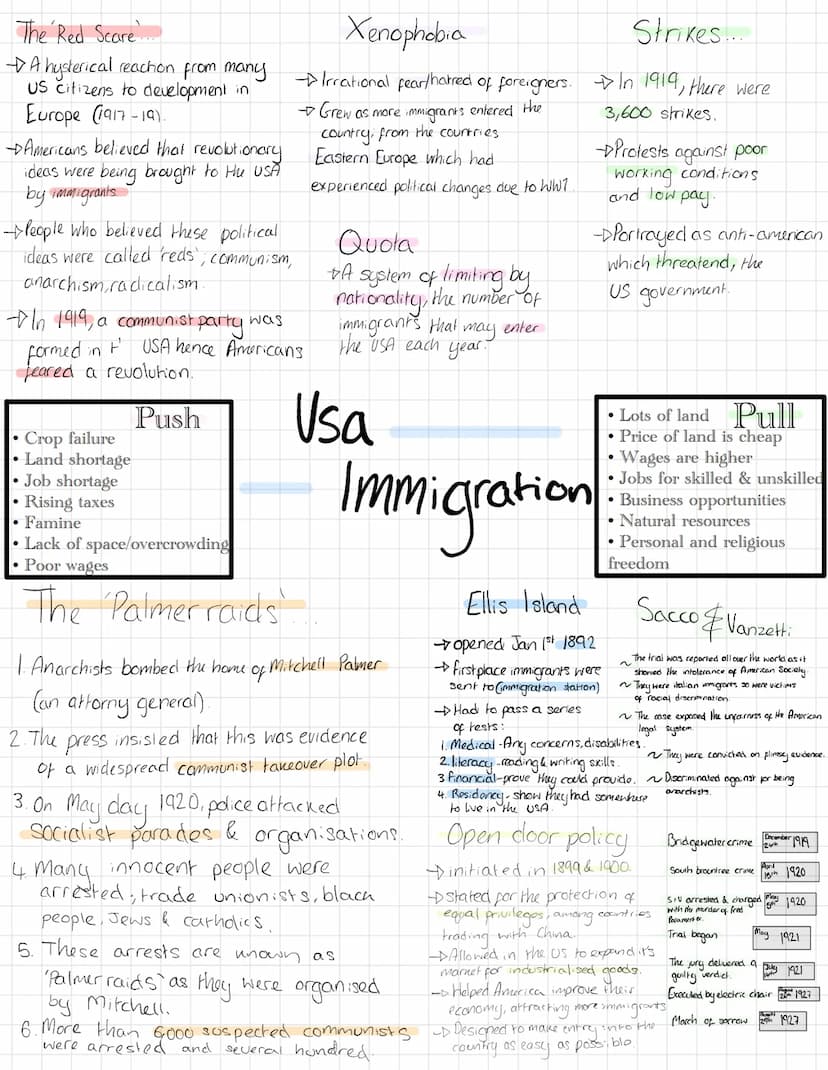 The 'Red Scare'...
→ A hysterical reaction from many
US citizens to development in
Europe (1917-19).
→ Americans believed that revolutionary
ideas were being brought to the USA
by immigrants
→ People who believed these political
ideas were called 'reds'; communism,
anarchism, radicalism.
→ In 1919, a communist party was
formed in t' USA hence Americans
feared a revolution.
Xenophobia
→ Irrational fear/hatred of foreigners.
→ Grew as more immigrants entered the
country, from the countries
Eastern Europe which had
experienced political changes due to WW1.
Quota
→ A system of limiting by
nationality, the number of
immigrants that may enter
the USA each year.
Strikes...
→ In 1919, there were
3,600 strikes.
→ Protests against poor
working conditions
and low pay.
→ Portrayed as anti-american
which threatend, the
US government.
Push
• Crop failure
• Land shortage
• Job shortage
• Rising taxes
• Famine
• Lack of space/overcrowding
• Poor wages
Usa
Immigration
Pull
• Lots of land
• Price of land is cheap
• Wages are higher
• Jobs for skilled & unskilled
• Business opportunities
• Natural resources
• Personal and religious
freedom
The 'Palmer raids'...
1. Anarchists bombed the home of Mitchell Palmer
(an attorny general).
2. The press insisted that this was evidence
of a widespread communist takeover plot.
3. On May day 1920, police attacked
socialist parades & organisations.
4. Many innocent people were
arrested; trade unionists, black
people, Jews & catholics.
5. These arrests are known as
'Palmer raids' as they were organised
by Mitchell.
6. More than 6000 suspected communists
were arrested and several hundred.
Ellis Island
→ opened Jan 1st 1892
→ first place immigrants were
sent to (immigration station)
→ Had to pass a series
of tests:
1. Medical - Any concerns, disabilities.
2. literacy - reading & writing skills.
3. Financial - prove they could provide.
4. Residency - show they had somewhere
to live in the USA.
Open door policy
→ initiated in 1899 & 1900.
→ stated for the protection of
equal privileges, among countries
trading with China.
→ Allowed in the US to expand it's
market for industrialised goods.
→ Helped America improve their
economy, attracting more immigrants
→ Designed to make entry into the
country as easy as possible.
Sacco & Vanzetti
~ The trial was reported all over the world as it
showed the intolerance of American Society
~ They were italian imigrants so were victims
of racial discrimination.
~ The case exposed the unfairness of the American
legal system.
~ They were convicted on flimsy evidence.
~ Discriminated against for being
anarchists.
Bridgewater crime December 24th 1919
South braintree crime April 15th 1920
S&V arrested & charged May 5th 1920
with the murder of fred
Parmenter.
Trial began May 1921
The jury delivered a July 1921
guilty verdict.
Executed by electric chair 1927
March of sorrow August 1927